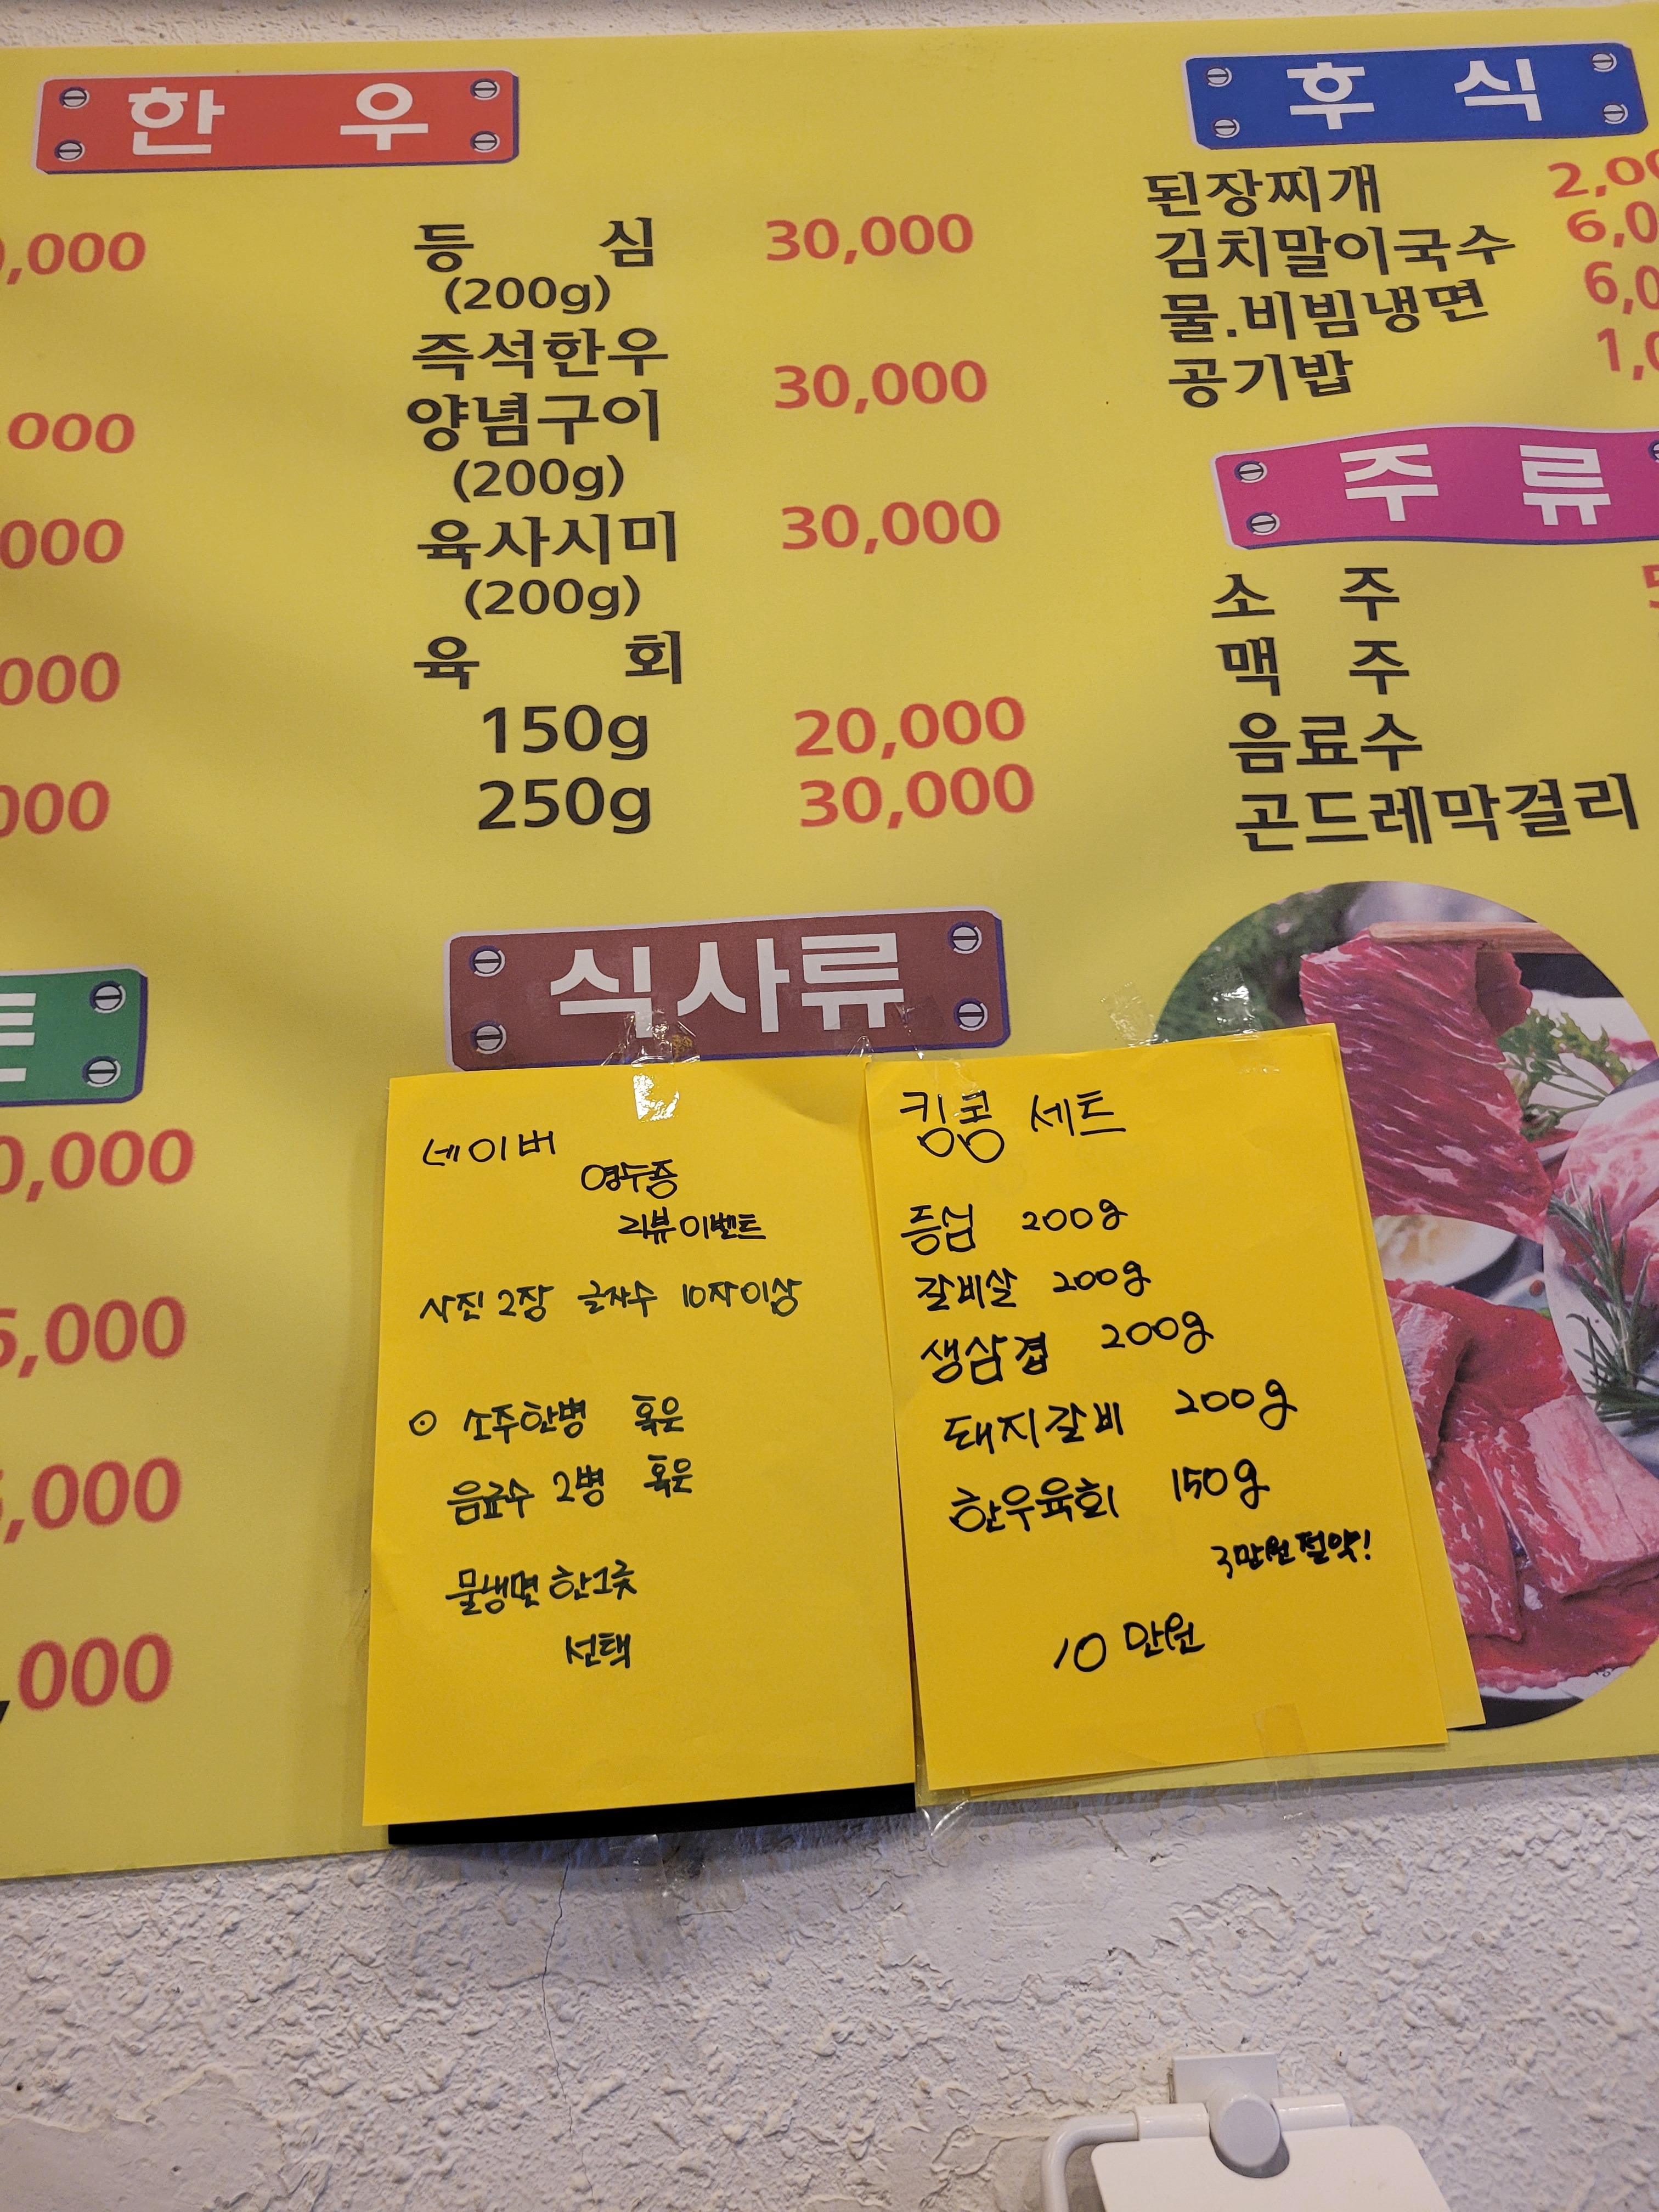 한 우
,000
,000
000
000
000
등 심 30,000
(200g)
즉석한우
양념구이 30,000
(200g)
육사시미 30,000
(200g)
육 회
150g 20,000
250g 30,000
후 식
된장찌개 2,00
김치말이국수 6,0
물.비빔냉면 6,0
공기밥 1,0
주 류
소 주 5
맥 주
음료수
곤드레막걸리
트
0,000
5,000
5,000
,000
식사류
네이버
영수증
리뷰이벤트
사진 2장 글자수 10자이상
⊙ 소주한병 혹은
음료수 2병 혹은
물냉면 한그릇
선택
킹콩 세트
등심 200g
갈비살 200g
생삼겹 200g
돼지갈비 200g
한우육회 150g
3만원절약!
10만원